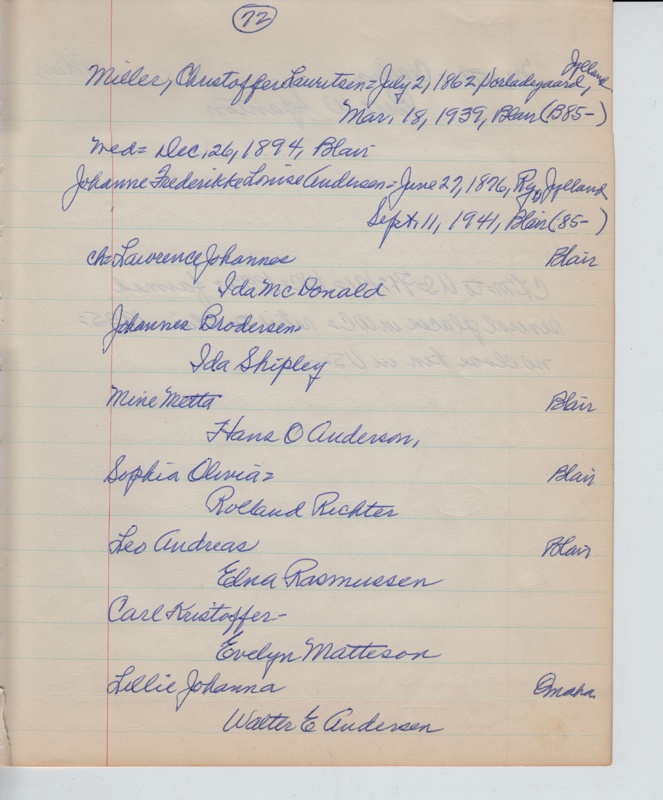 72
Jylland
Miller, Christoffer Lauritsen = July 2, 1862, Vorladegaard,
Mar. 18, 1939, Blair (B85-)
wed = Dec. 26, 1894, Blair
Johanne Frederikke Louise Andersen = June 27, 1876, Ry, Jylland
Sept. 11, 1941, Blair (85-)
ch: Lawrence Johannes Blair
Ida McDonald
Johannes Brodersen
Ida Shipley
Mine Metta Blair
Hans O Anderson,
Sophia Olivia = Blair
Rolland Richter
Leo Andreas Blair
Edna Rasmussen
Carl Kristoffer -
Evelyn Matteson
Lillie Johanna Omaha
Walter E Andersen